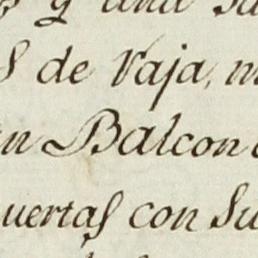 y una
s de Vaja, m
n Balcon
uertas con Su